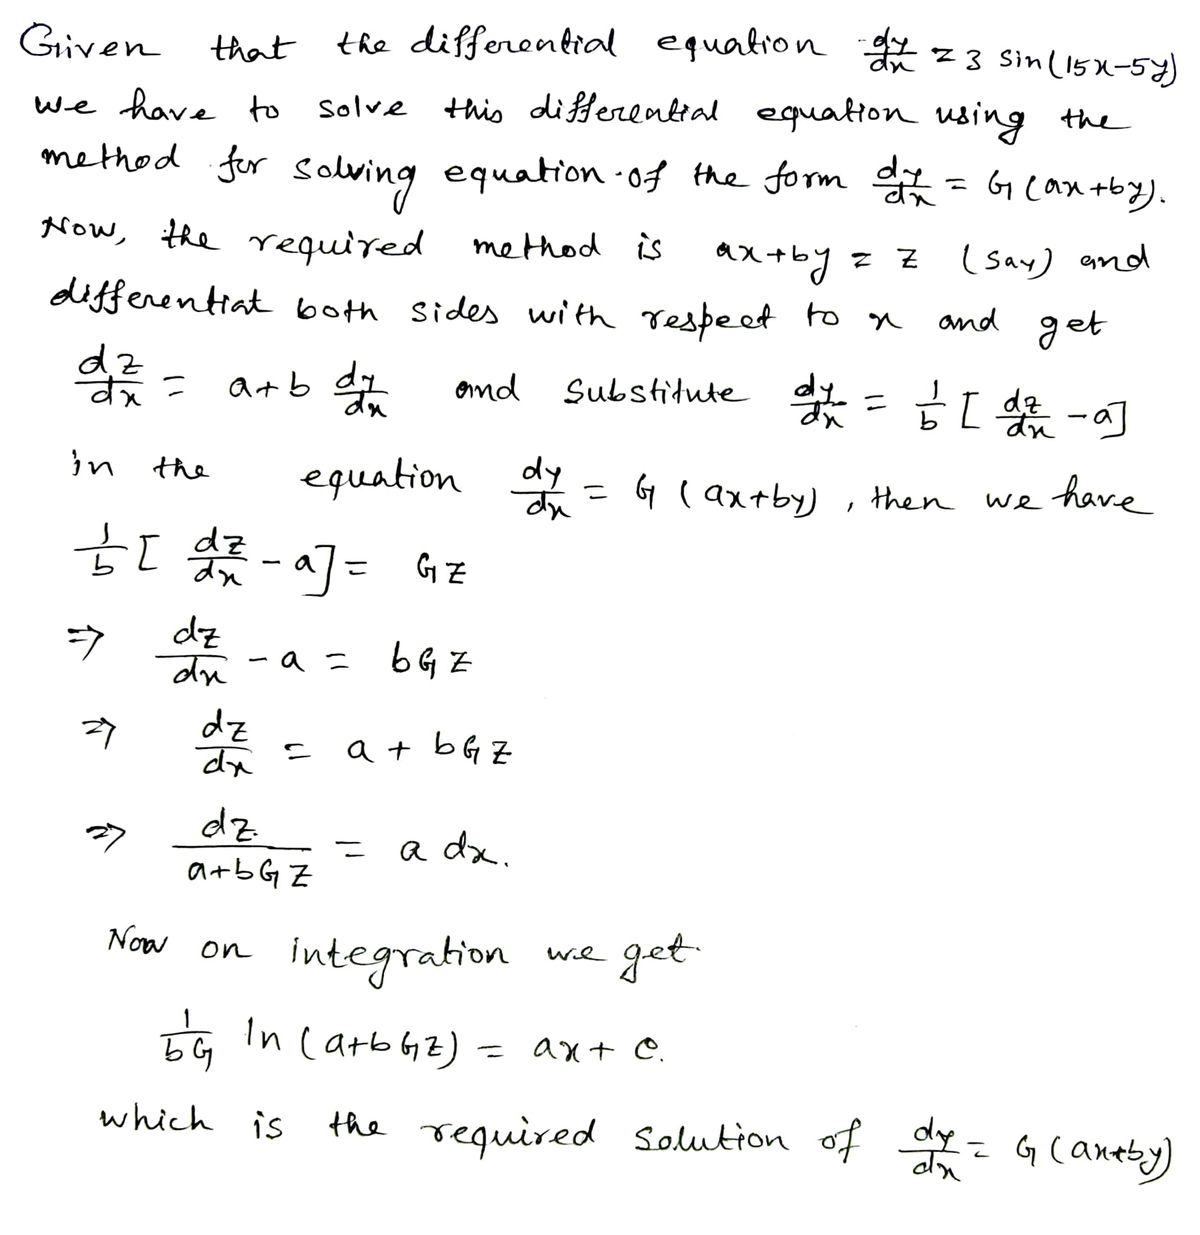 Given that the differential equation dy/dx = 3 sin(15x-5y)
we have to solve this differential equation using the
method for solving equation of the form dy/dx = G(ax+by).
Now, the required method is ax+by = z (say) and
differentiat both sides with respect to x and get
dz/dx = a+b dy/dx and substitute dy/dx = 1/b [dz/dx - a]
in the equation dy/dx = G(ax+by), then we have
1/b [dz/dx - a] = Gz
⇒ dz/dx - a = bGz
⇒ dz/dx = a + bGz
⇒ dz/(a+bGz) = a dx.
Now on integration we get.
1/bG ln(a+bGz) = ax + c.
which is the required solution of dy/dx = G(ax+by)